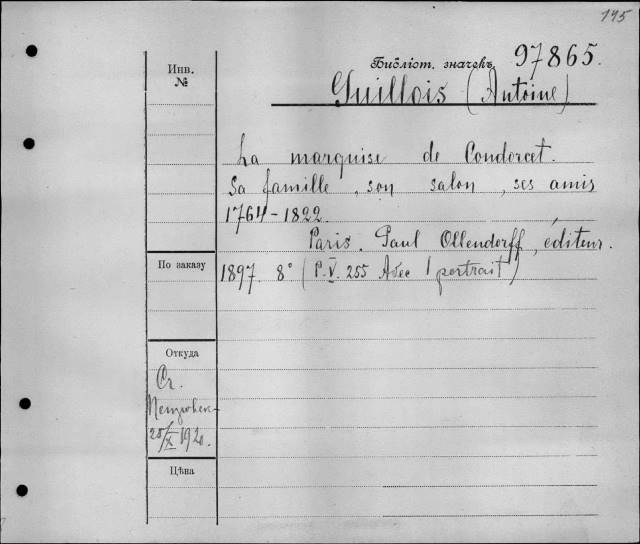 195
Библіот. значекъ 97865.
Инв.
№
Guillois (Antoine)
La marquise de Condorcet.
Sa famille, son salon, ses amis
1764-1822.
Paris. Paul Ollendorff, éditeur.
По заказу
1897. 8° (P. V. 255 Avec 1 portrait)
Откуда
Ст.
25/X 192.
Цѣна